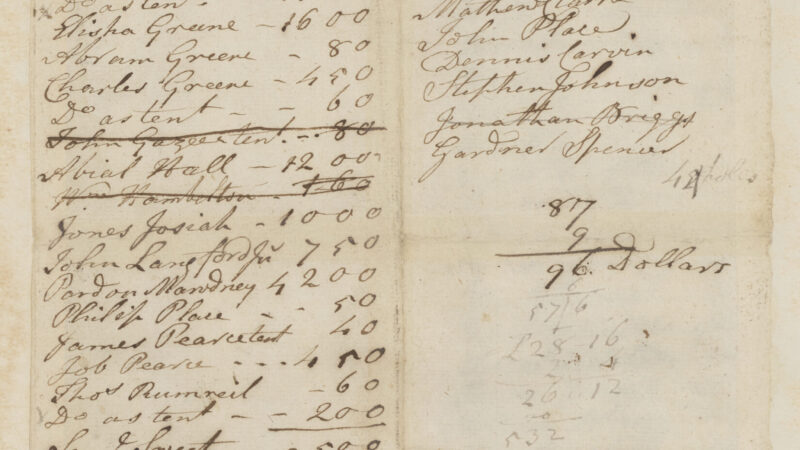 Do as tent
Elisha Greene - 1600
Abram Greene - 80
Charles Greene - 450
Do as tent - - 60
John Gazee tent - - 80
Abial Hall - 1200
Wm Hambelton - 160
Jones Josiah - 1000
John Langford Ju 750
Pardon Mawdney 4200
Philip Place - 50
James Pearce tent 40
Job Pearce - - - 450
Thos Rumreil - 60
Do as tent - - 200
Sweet - 500
Mathew
John Place
Dennis Carvin
Stephen Johnson
Jonathan Briggs
Gardner Spencer
87
9
96 Dollars
57 6
£28-16
26 12
532